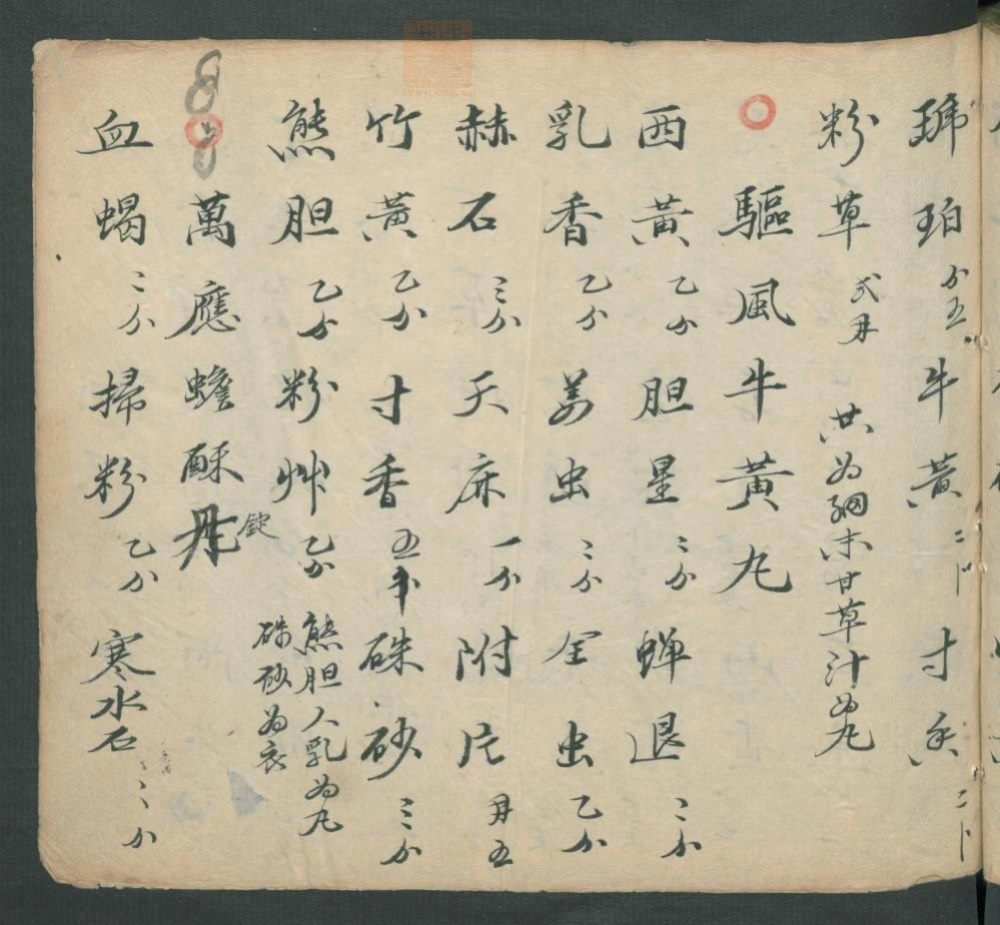 琥珀 分五 牛黃 二卜 寸香 二卜
粉草 弍月 共為細末甘草汁為丸
驅風牛黃丸
西黃 乙分 胆星 三分 蝉退 三分
乳香 乙分 姜虫 三分 全虫 乙分
赫石 三分 天麻 一分 附片 月五
竹黃 乙分 寸香 五卜 硃砂 三分
熊胆 乙分 粉艸 乙分 熊胆人乳為丸
硃砂為衣
萬應蟾酥丹 錠
血蝎 三分 掃粉 乙分 寒水石 三分